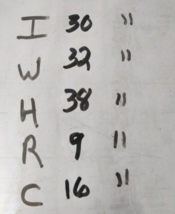 I 30 "
W 32 "
H 38 "
R 9 "
C 16 "